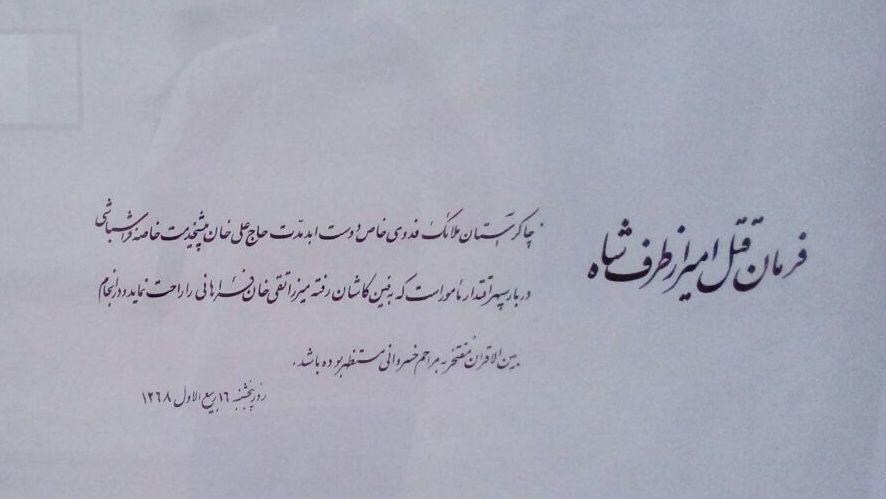 فرمان قتل امیر از طرف شاه
چاکر آستان ملائک فدوی خاص دولت ابد مدّت حاج علی خان پیشخدمت خاصه فراشباشی
دربار سپهر اقتدار مأمور است که به فین کاشان رفته میرزا تقی خان فراهانی را راحت نماید در انجام
بین الاقران مفتخر به مراحم خسروانی مستظهر بوده باشد.
روز پنجشنبه ۱۶ ربیع الاول ۱۲۶۸